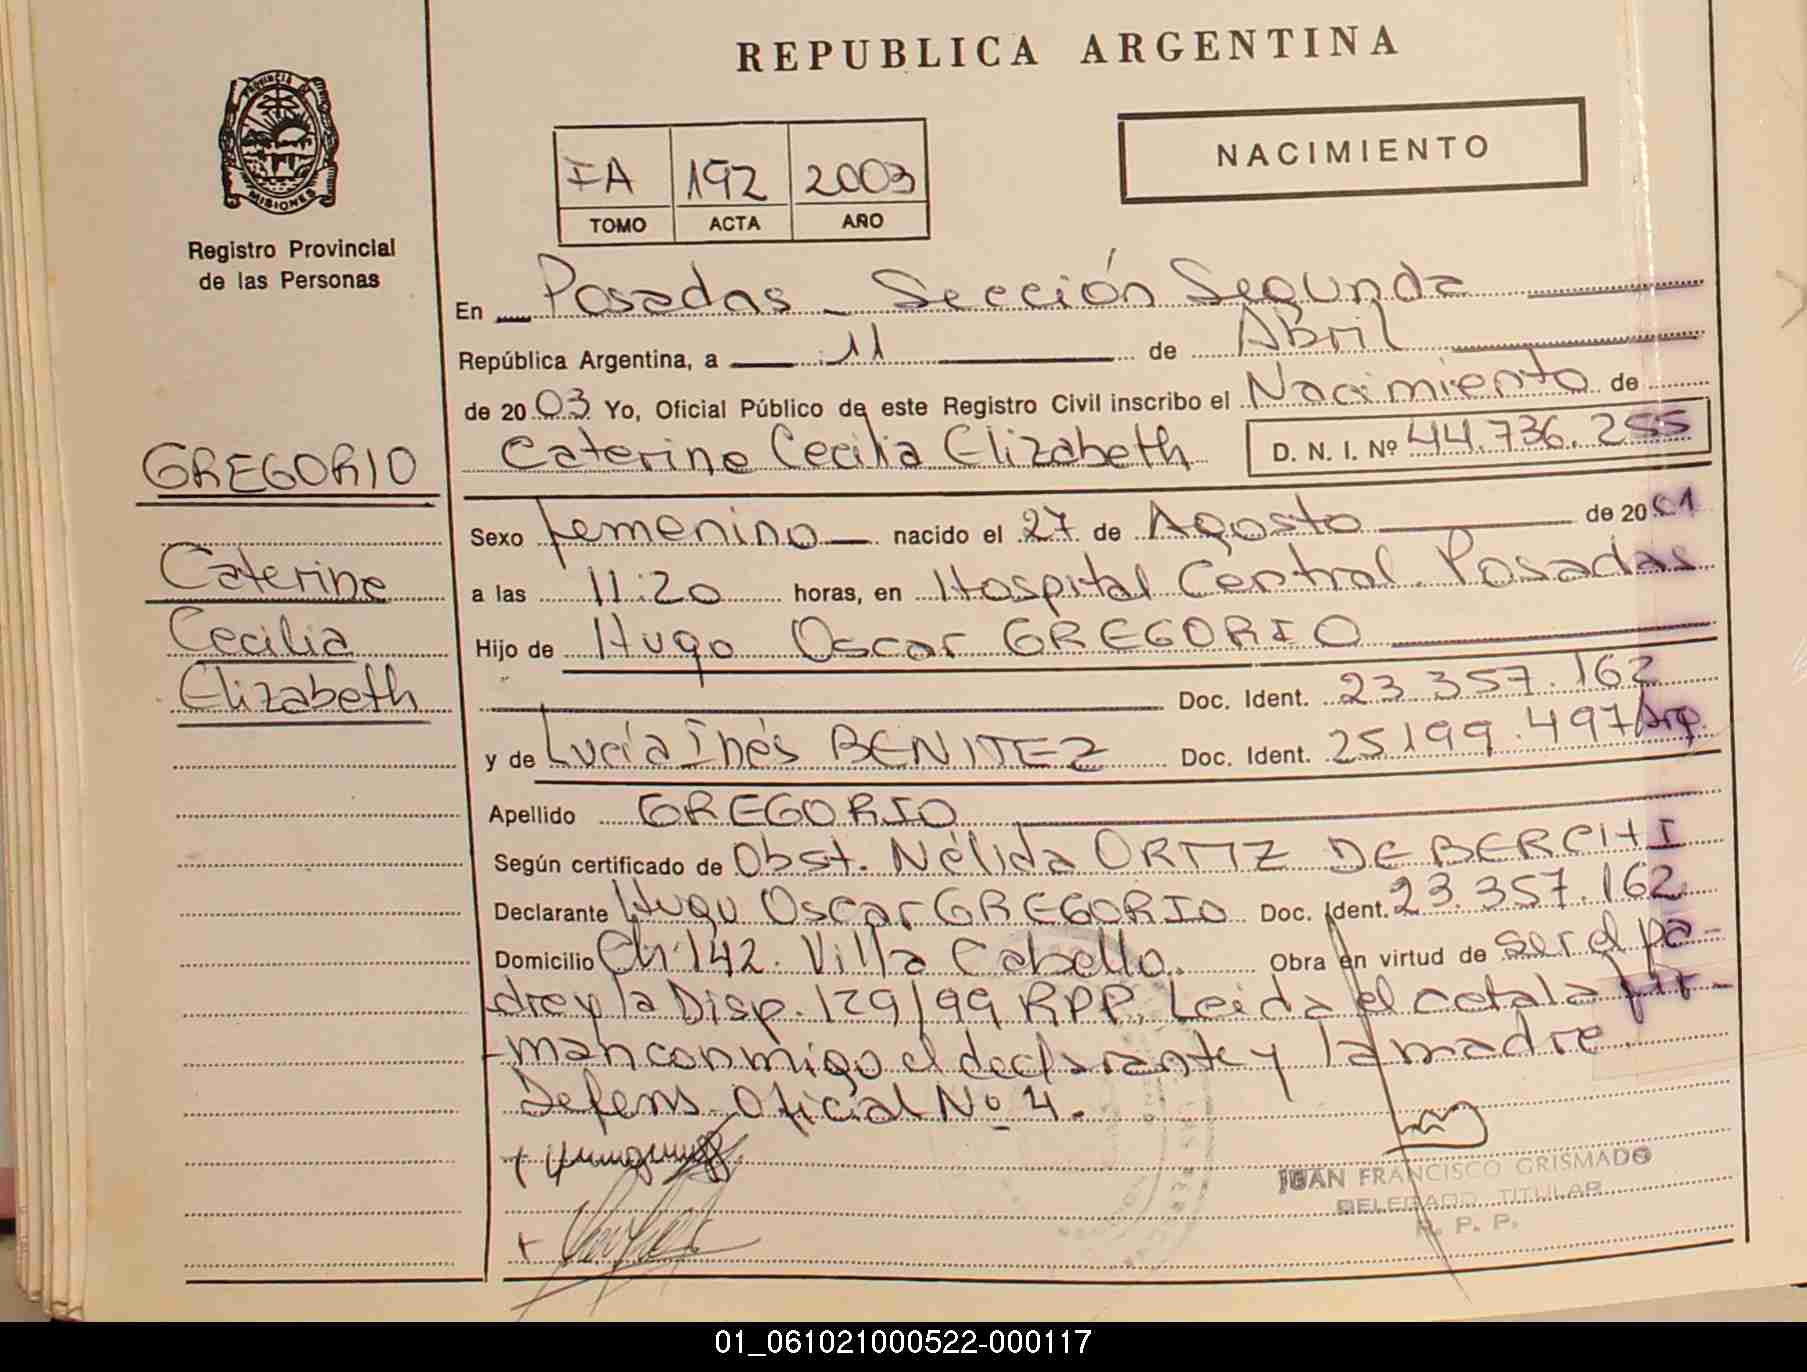 REPUBLICA ARGENTINA
PROVINCIA DE
MISIONES
Registro Provincial
de las Personas
IA 192 2003
TOMO ACTA AÑO
NACIMIENTO
En Posadas - Sección Segunda
República Argentina, a 11 de Abril
de 2003 Yo, Oficial Público de este Registro Civil inscribo el Nacimiento de
Caterine Cecilia Elizabeth D. N. I. Nº 44.736.255
GREGORIO
Caterine
Cecilia
Elizabeth
Sexo femenino nacido el 27 de Agosto de 2001
a las 11:20 horas, en Hospital Central. Posadas
Hijo de Hugo Oscar GREGORIO
Doc. Ident. 23.357.162
y de Lucía Inés BENITEZ Doc. Ident. 25.199.497 Arg.
Apellido GREGORIO
Según certificado de Obst. Nélida ORTIZ DE
Declarante Hugo Oscar GREGORIO Doc. Ident. 23.357.162
Domicilio Ch 142. Villa Cabello. Obra en virtud de ser el pa-
dre y la Disp. 129/99 RPP. Leida el acta la fir-
-man conmigo el declarante y la madre.
Oficial Nº 4.
JUAN FRANCISCO GRISMADO
DELEGADO TITULAR
R. P. P.
01_061021000522-000117